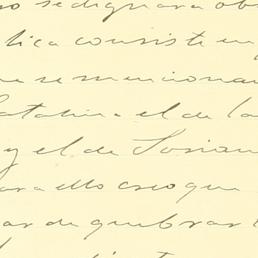 no se dignara ob
tica consiste en
e se mencionan
Catalina el de la
y el de Sorian
para ello creo que
ar de quebrar l